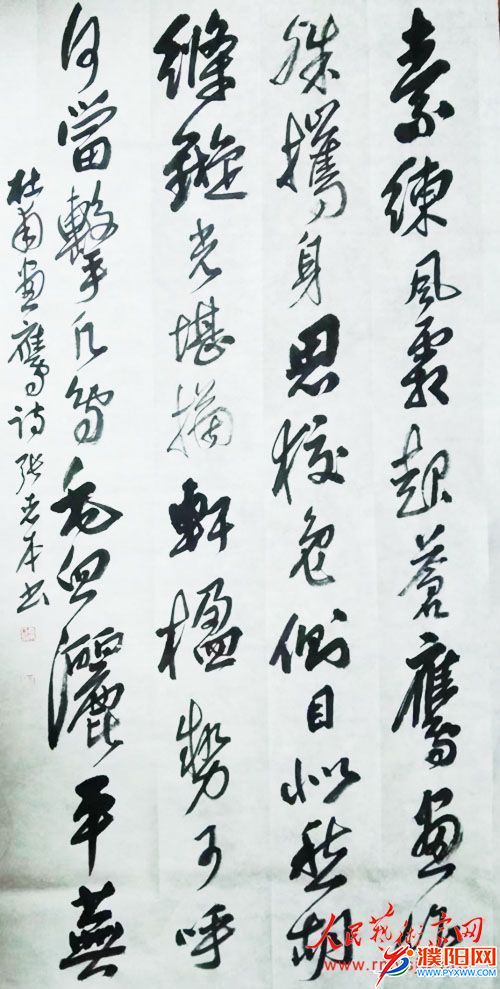 素練風霜起蒼鷹畫作
殊㩳身思狡兔側目似愁胡
絛鏇光堪摘軒楹勢可呼
何當擊凡鳥毛血灑平蕪
杜甫畫鷹诗张书
人民藝術家网
www.rr
濮阳网
WWW.PYXWW.COM